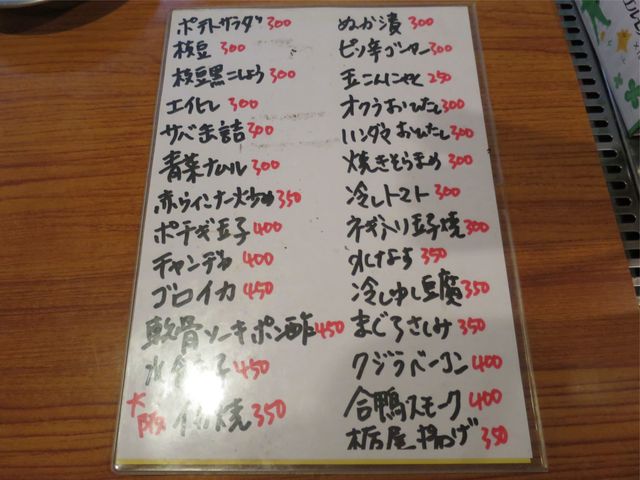 ポテトサラダ 300
枝豆 300
枝豆黒こしょう 300
エイヒレ 300
サバ缶詰 300
青菜ナムル 300
赤ウィンナー炒め 350
ポテギ玉子 400
チャンヂャ 400
ゴロイカ 450
軟骨ソーキポン酢 450
水 450
大阪 イカ焼 350
ぬか漬 300
ピリ辛ゴーヤー 300
玉こんにゃく 250
オクラおひたし 300
ハンダマおひたし 300
焼きそらまめ 300
冷しトマト 300
ネギ入り玉子焼 300
水なす 350
冷しゆし豆腐 350
まぐろさしみ 350
クジラベーコン 400
合鴨スモーク 400
栃尾揚げ 350